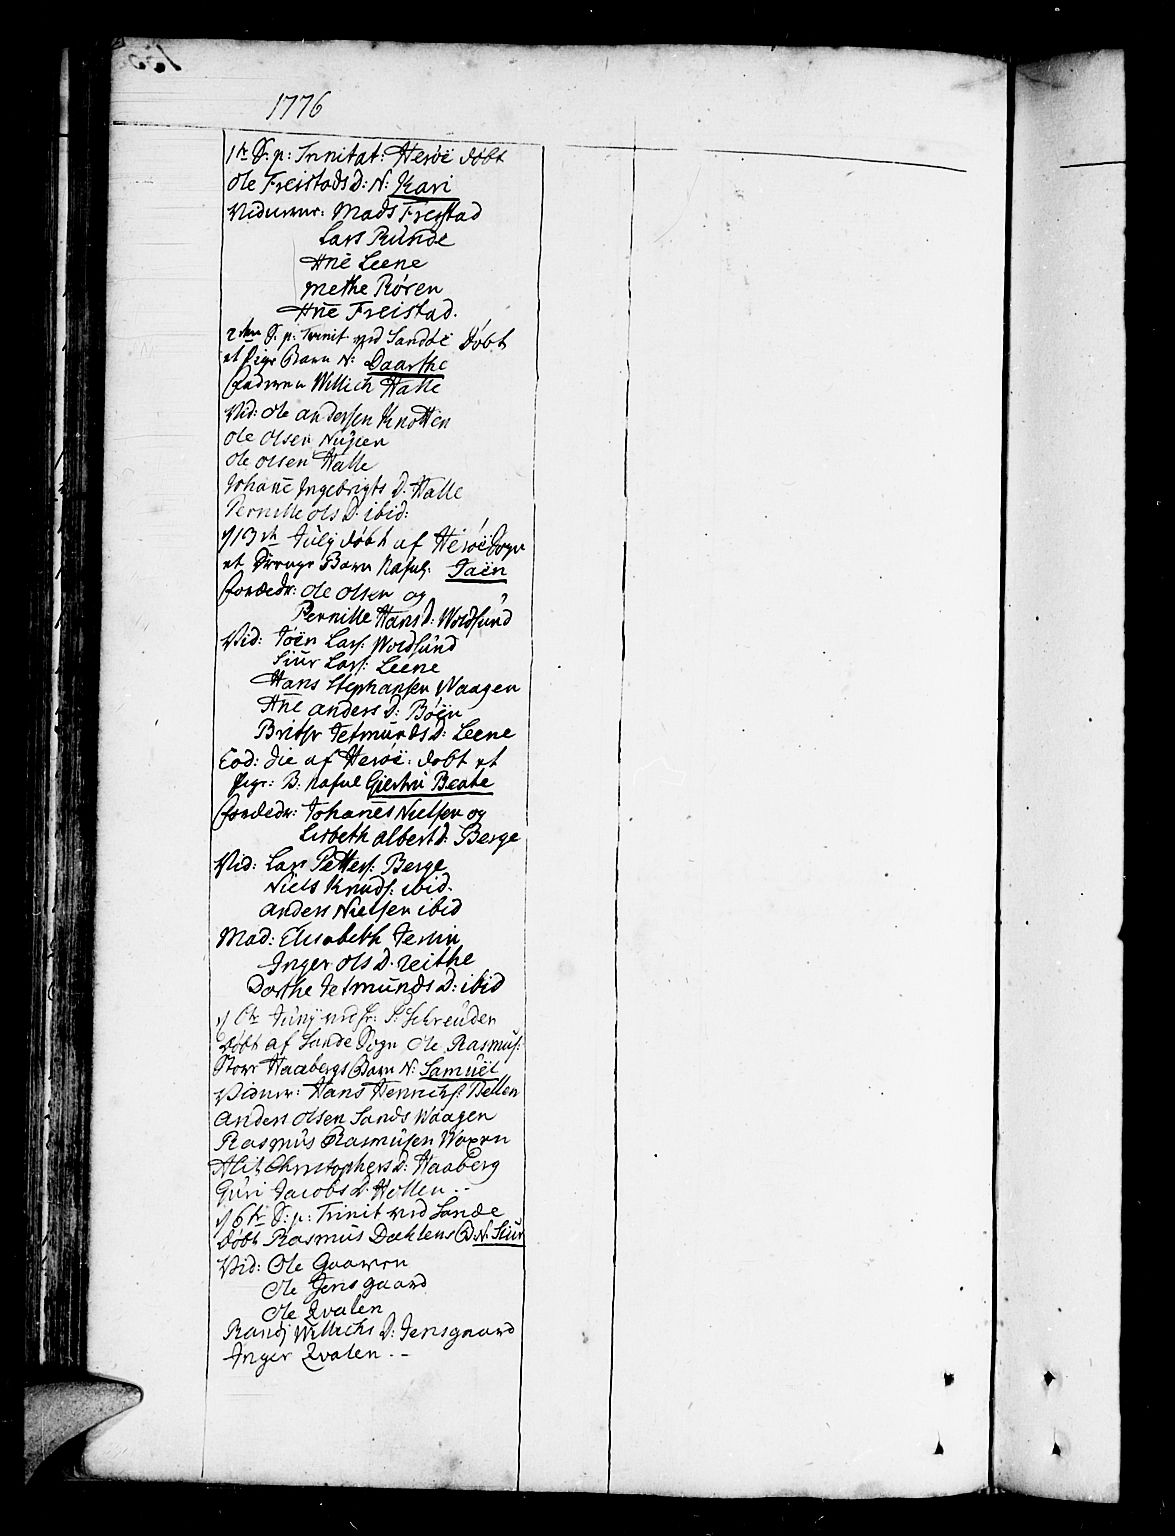 1776
1te S. p: Trinitat: Herøe døbt
Ole Freistads D: N: Kari
Vidnerne: Mads Freistad
Lars Runde
Ane Leene
Methe Røren
Ane Freistad.
2den S. p: Trinit ved Sandøe Døbt
et Pige Barn N: Daarthe
Faderen Willich Halle
Vid: Ole andersen Knotten
Ole Olsen
Ole Olsen Halle
Johane Ingebrigts D. Halle
Pernille Ols D. ibid:
d 13de Julij døbt af Herøe Sogn
et Drenge Barn Nafnl: Jaen
Forældr: Ole Olsen og
Pernille Hans D: Woldsund
Vid: Joen Lars: Woldsund
Siur Lars: Leene
Hans Stephansen Waagen
Ane anders D: Bøen
Brithe Jetmunds D: Leene
Eod: die af Herøe: døbt et
Pige: B. Nafnl Giertru Beathe
Forældr: Johanes Nielsen og
Lisbeth albert D: Berge
Vid: Lars Petters: Berge
Niels Knuds: ibid.
anders Nielsen ibid
Mad: Elisabeth
Inger Ols D.
Dorthe Jetmunds D: ibid
Junij ved Hr: S: Schreuder
Døbt af Sande Sogn Ole Rasmus:
Stor Haabergs Barn N: Samuel
Vidner: Hans Henrichs:
anders Olsen Sands Waagen
Rasmus Rasmusen
Christophers D: Haaberg
Guri Jacobs D. Hollen . -
d 6te S: p: Trinit ved Sande
Døbt Rasmus B. N: Siur
Vid: Ole
Ole Jensgaard
Ole Qvalen
Randi Willichs D: Jensgaard
Inger Qvalen . -